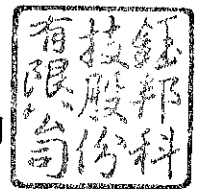 鈺邦科
技股份
有限公司